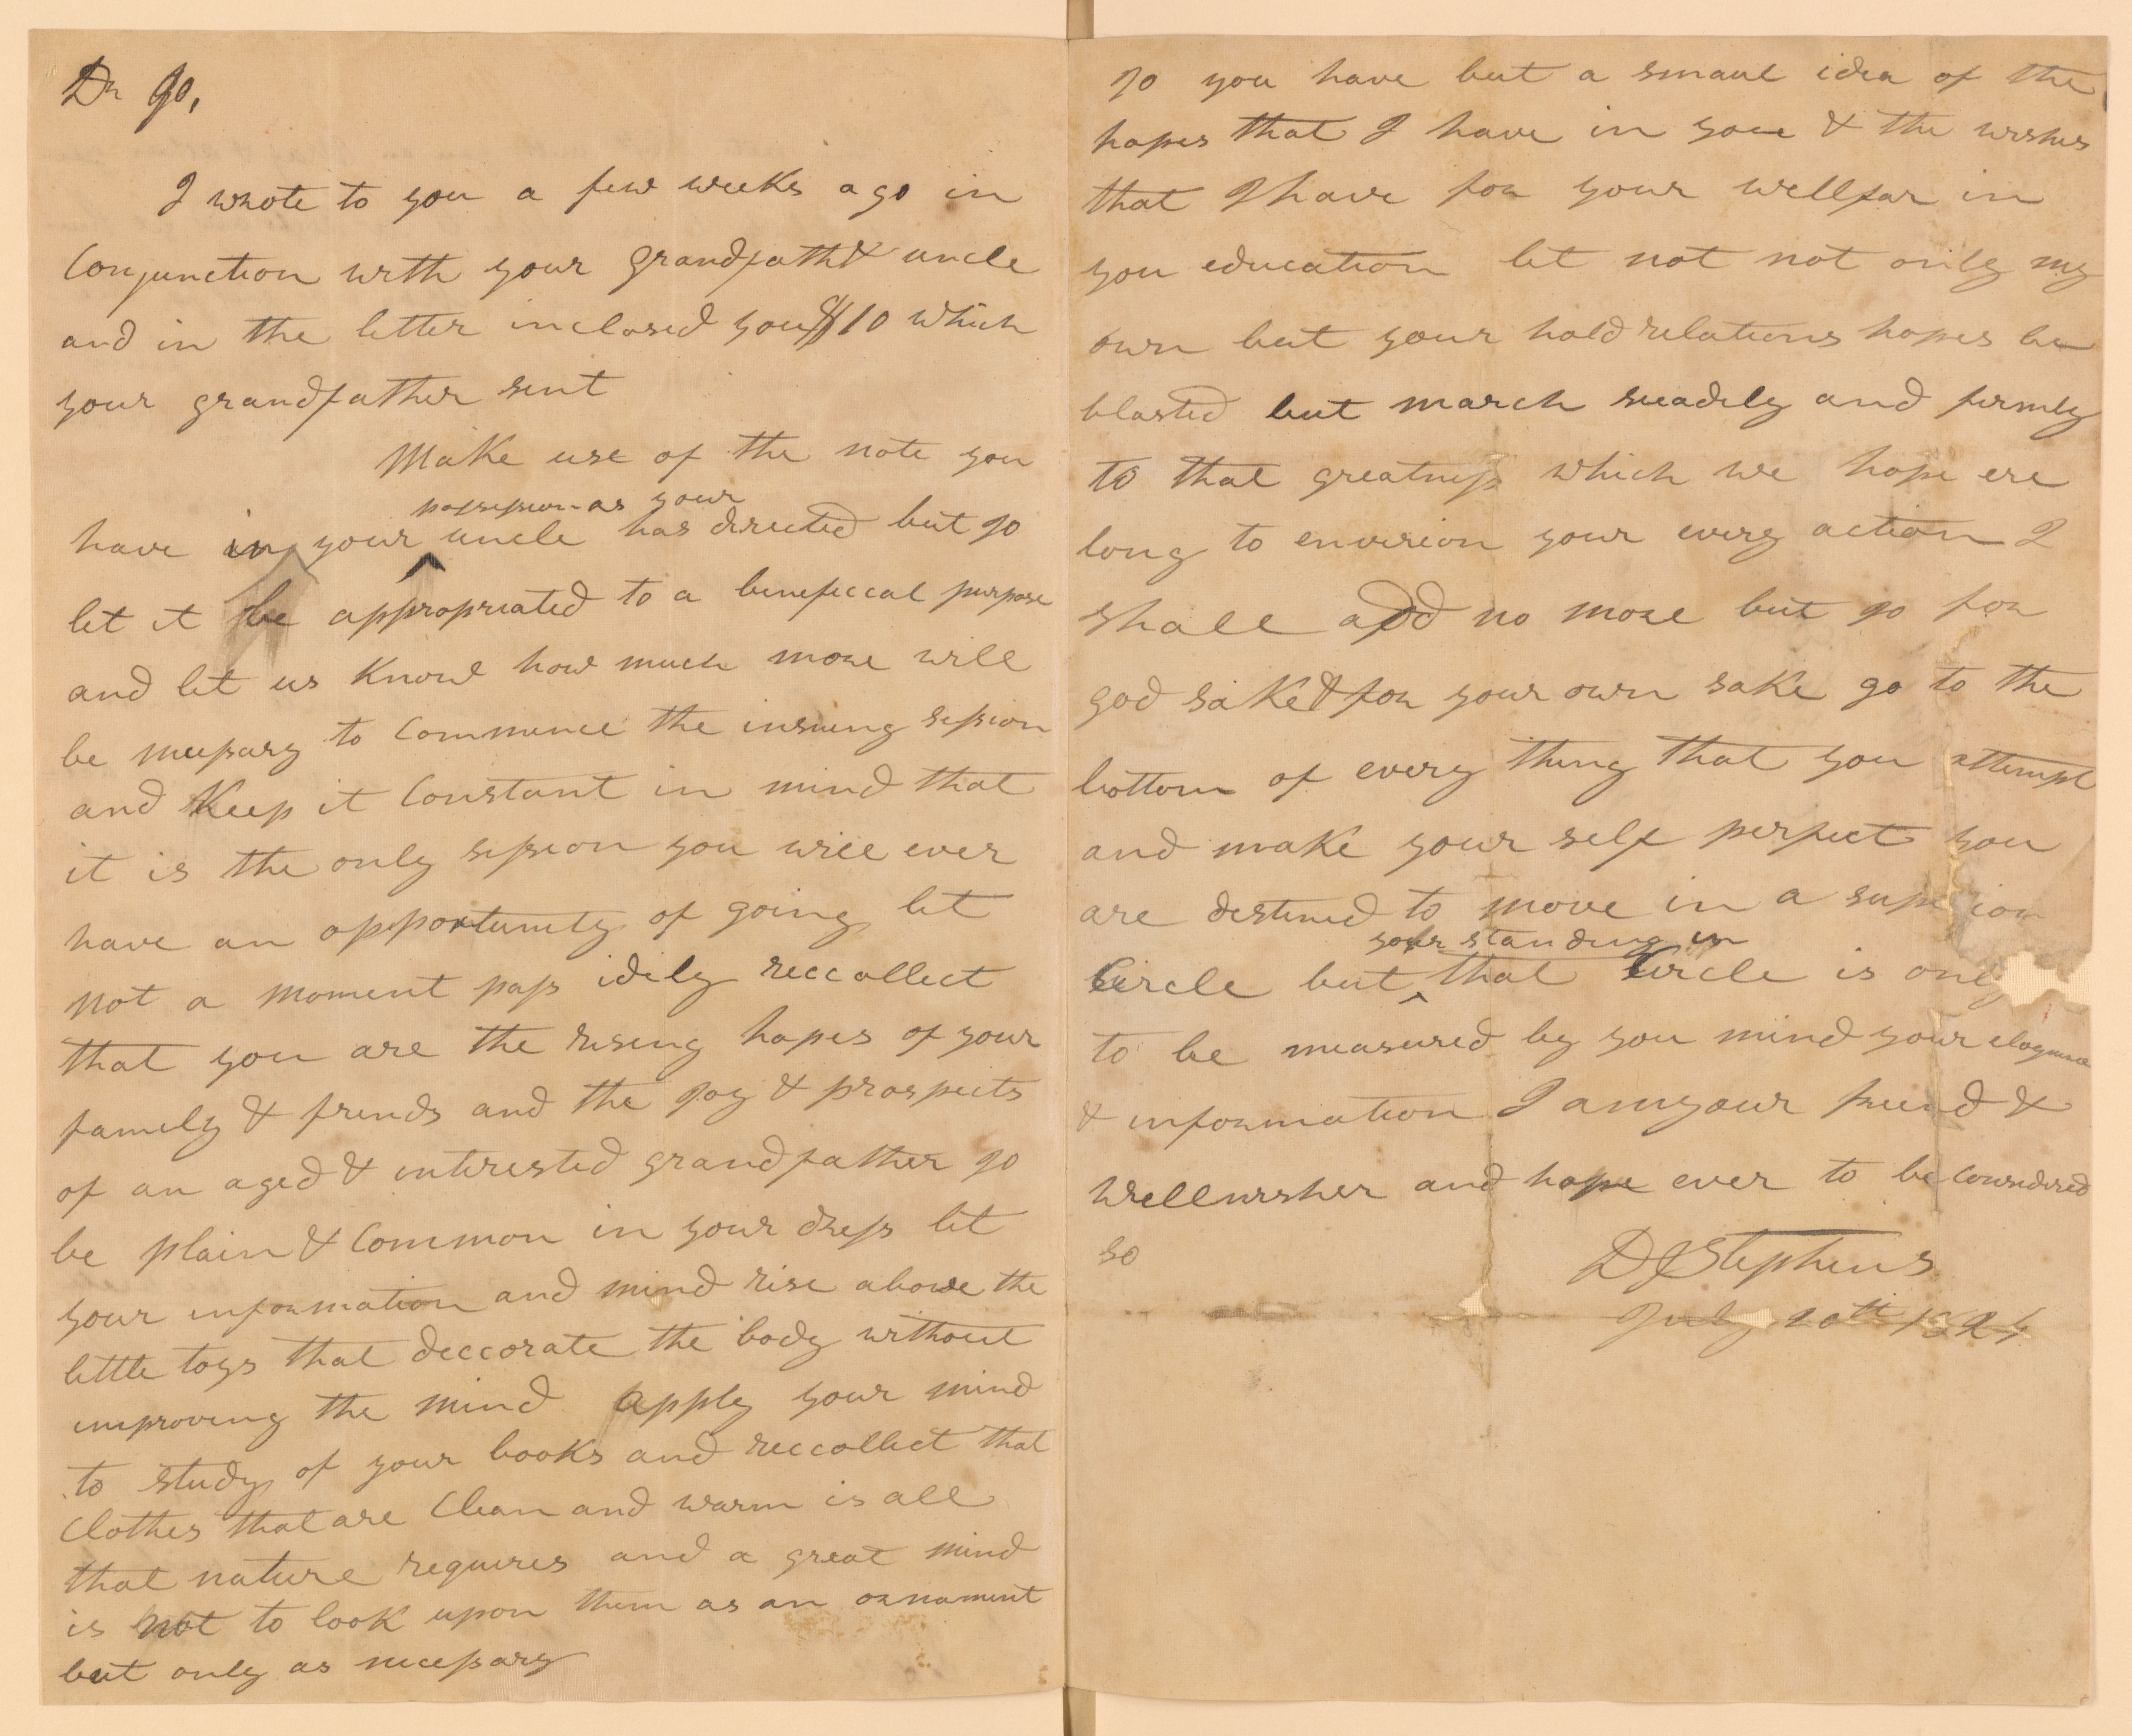 Dr Jo,
I wrote to you a few weeks ago in
Conjunction with your grandfath & uncle
and in the letter inclosed you $10 which
your grandfather sent
Make use of the note you
possession as your
have in your uncle has directed but Jo
let it be appropriated to a beneficcal purpose
and let us know how much more will
be necessary to Commence the insuing session
and Keep it Constant in mind that
it is the only session you will ever
have an opportunity of going let
not a moment pass idily reccollect
that you are the rising hopes of your
family & frends and the joy & prospects
of an aged & interested grandfather Jo
be plain & Common in your dress let
your information and mind rise above the
little toys that deccorate the body without
improving the mind Apply your mind
to study of your books and reccollect that
Clothes that are Clean and warm is all
that nature requires and a great mind
is not to look upon them as an ornament
but only as necessary
Jo you have but a smaul idea of the
hopes that I have in you & the wishes
that I have for your wellfar in
you education let not not only my
own but your hold relations hopes be
blasted but march steadily and firmly
to that greatness which we hope ere
long to envirion your every action I
shall add no more but Jo for
god sake & for your own sake go to the
bottom of every thing that you attempt
and make your self perfect you
are destined to move in a superior
your standing in
Circle but that Circle is only
to be measured by you mind your eloquence
& information I am your friend &
Wellwisher and hope ever to be Considered
so
D J Stephens
July 20th 1824